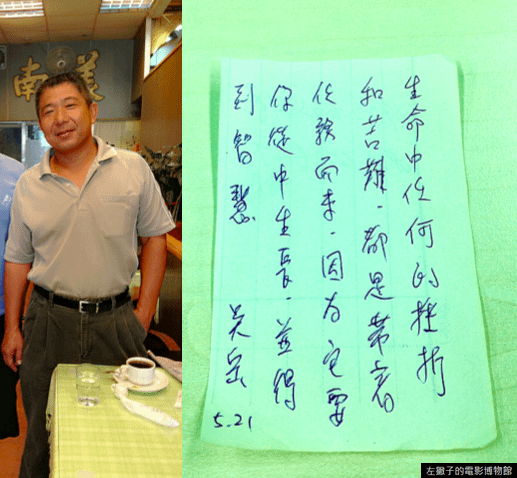 南美
生命中任何的挫折
和苦難，都是帶著
任務而來，因为它要
你從中生長，並得
到智慧 吳岳
5.21
左撇子的電影博物館